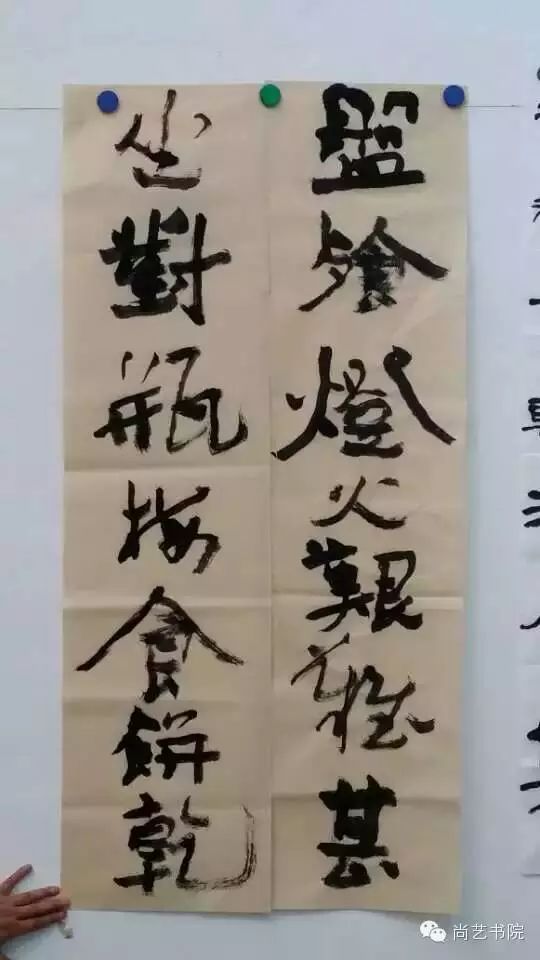 盤飱燈火艱難甚
坐對瓶梅食餅乾
尚艺书院